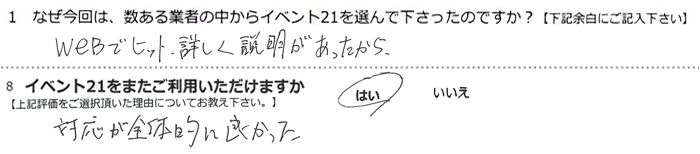 1 なぜ今回は、数ある業者の中からイベント21を選んで下さったのですか？【下記余白にご記入下さい】
WEBでヒット、詳しく説明があったから、
8 イベント21をまたご利用いただけますか はい いいえ
【上記評価をご選択頂いた理由についてお教え下さい。】
対応が全体的に良かった